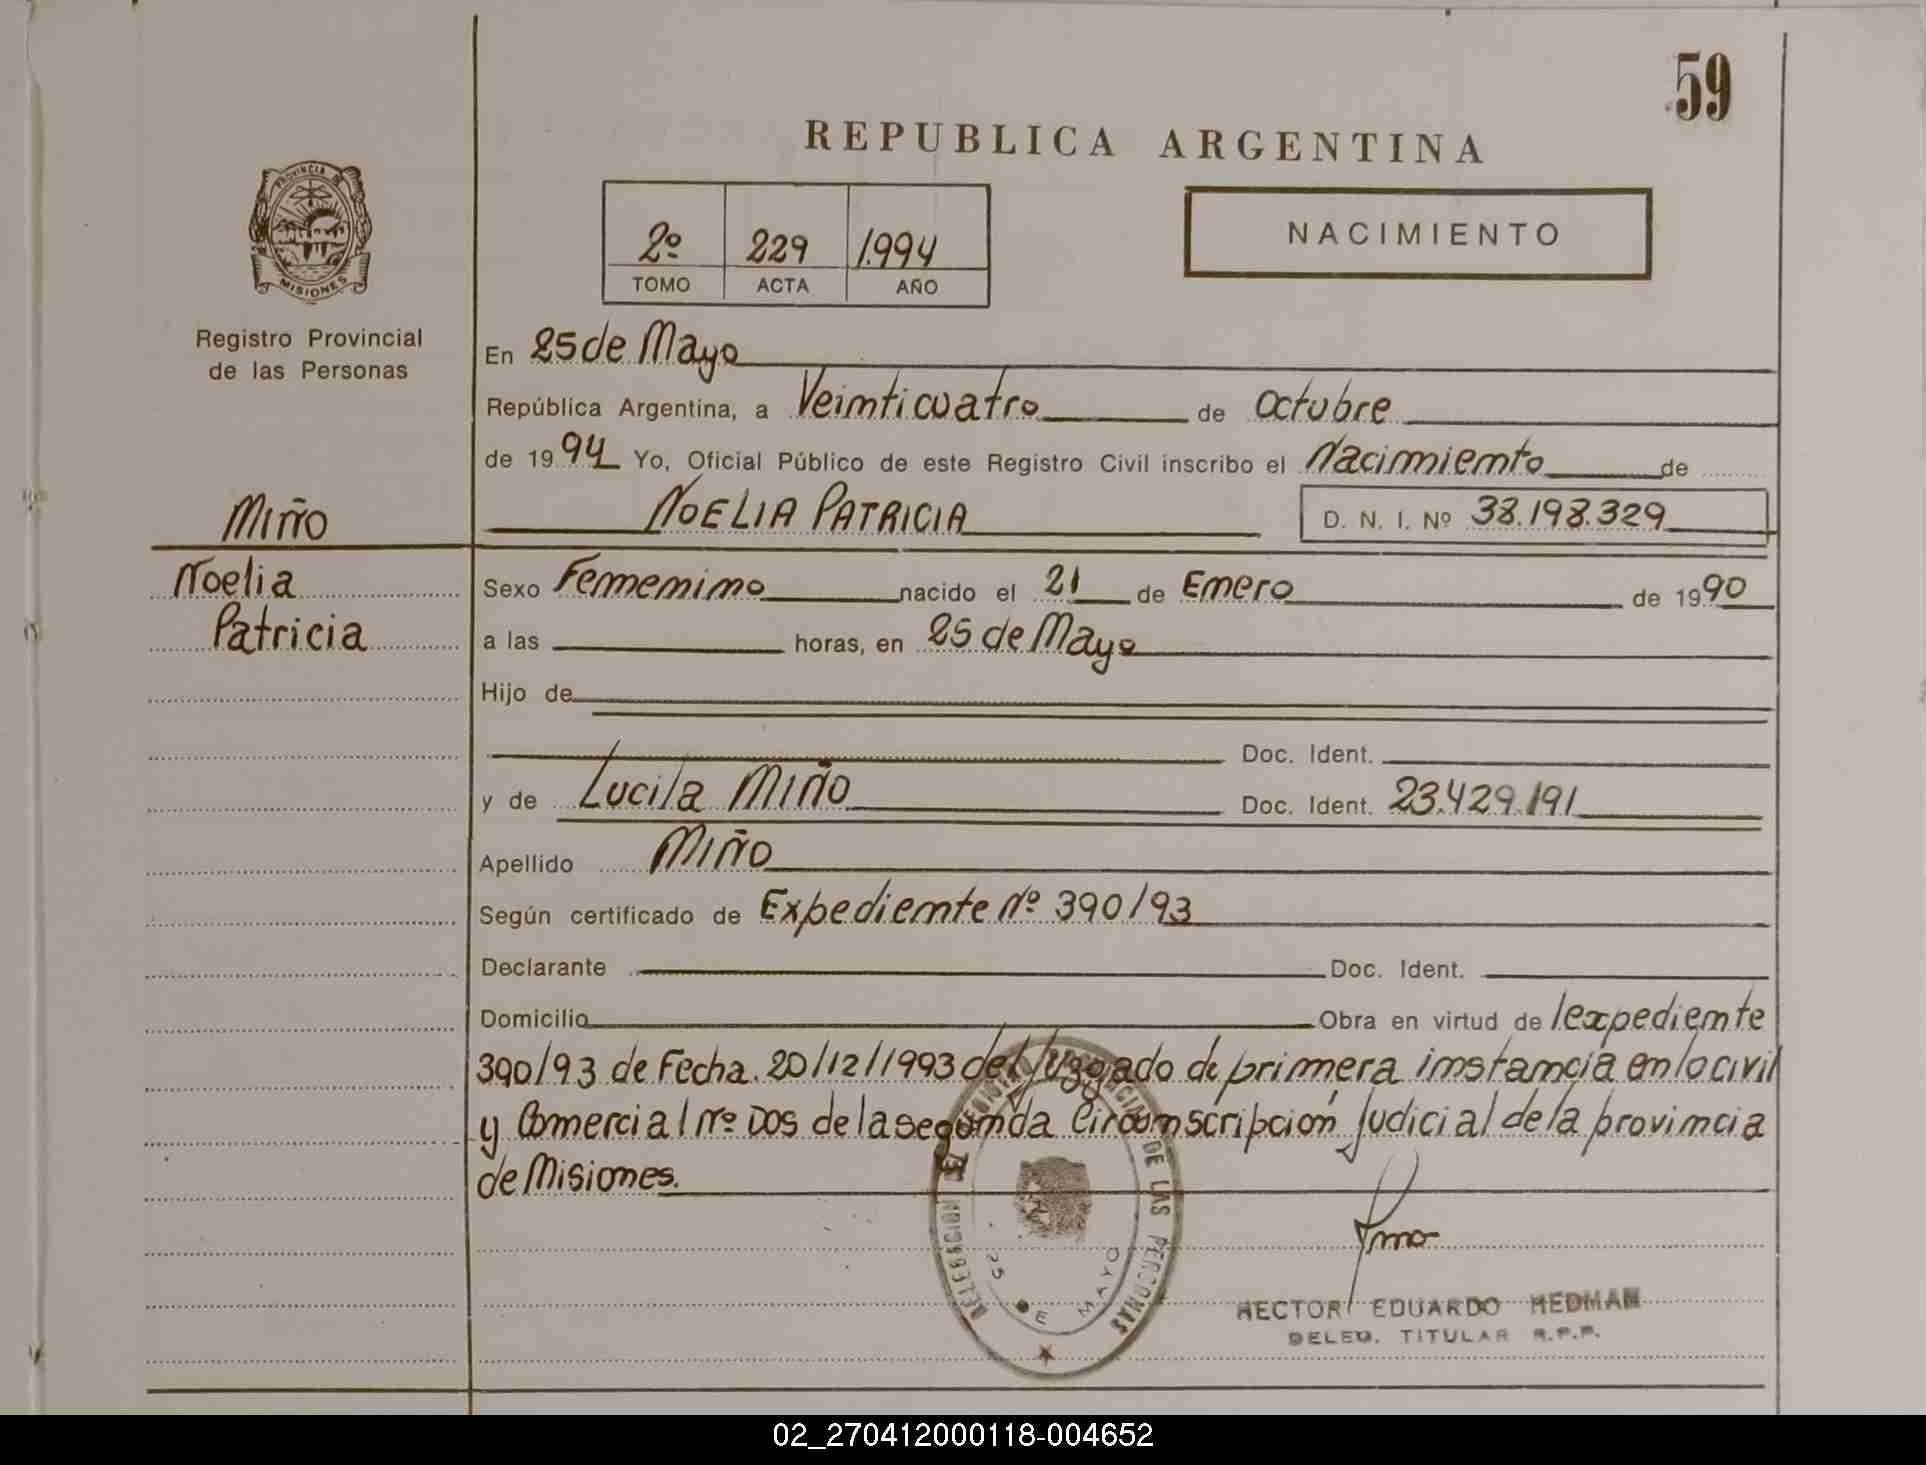 59
REPUBLICA ARGENTINA
PROVINCIA DE
MISIONES
Registro Provincial
de las Personas
2º 229 1.994
TOMO ACTA AÑO
NACIMIENTO
En 25 de Mayo
República Argentina, a Veinticuatro de Octubre
de 1994 Yo, Oficial Público de este Registro Civil inscribo el Nacimiento de
MIÑO
NOELIA PATRICIA D. N. I. Nº 38.198.329
Noelia
Patricia
Sexo Femenino nacido el 21 de Enero de 1990
a las horas, en 25 de Mayo
Hijo de
Doc. Ident.
y de Lucila MIÑO Doc. Ident. 23.429.191
Apellido MIÑO
Según certificado de Expediente Nº 390/93
Declarante Doc. Ident.
Domicilio Obra en virtud de expediente
390/93 de Fecha. 20/12/1993 del Juzgado de primera instancia en lo civil
y Comercial nº DOS de la segunda Circunscripción Judicial de la provincia
de Misiones.
DELEGACION DEL REGISTRO PROVINCIAL DE LAS PERSONAS
25 DE MAYO
HECTOR EDUARDO HEDMAN
DELEG. TITULAR R.P.P.
02_270412000118-004652